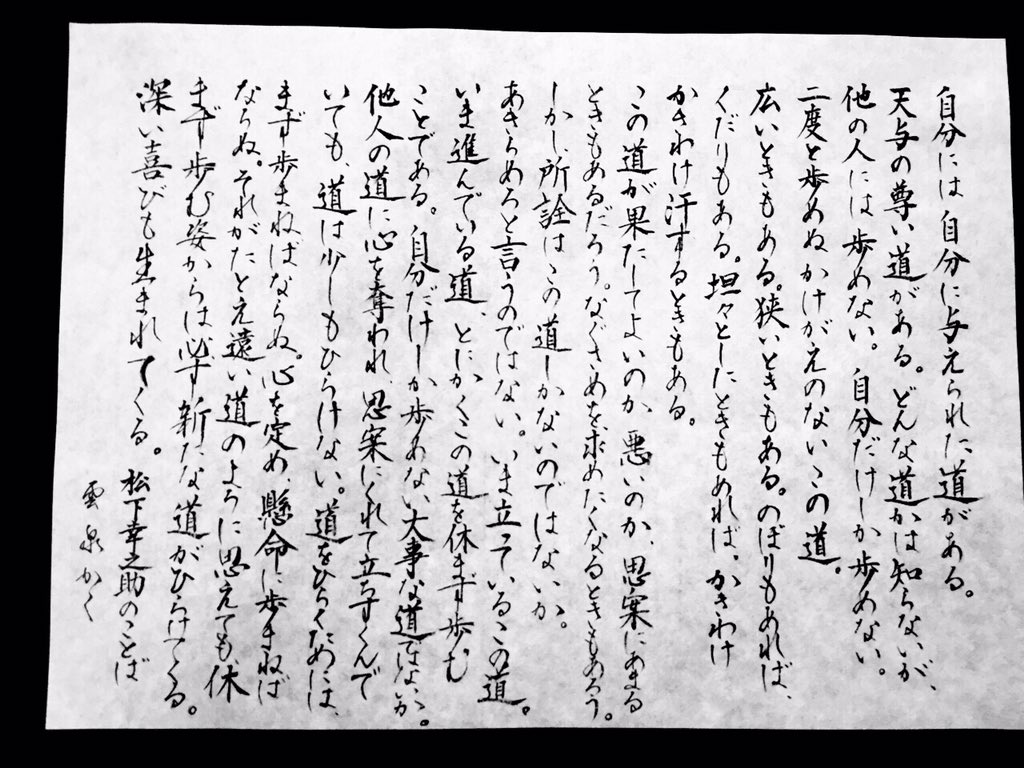 自分には自分に与えられた道がある。
天与の尊い道がある。どんな道かは知らないが、
他の人には歩めない。自分だけしか歩めない。
二度と歩めぬかけがえのないこの道。
広いときもある。狭いときもある。のぼりもあれば、
くだりもある。坦々としたときもあれば、かきわけ
かきわけ汗するときもある。
この道が果たしてよいのか、悪いのか、思案にあまる
ときもあるだろう。なぐさめを求めたくなるときもあろう。
しかし、所詮はこの道しかないのではないか。
あきらめろと言うのではない。いま立っているこの道。
いま進んでいる道、とにかくこの道を休まず歩む
ことである。自分だけしか歩めない大事な道ではないか。
他人の道に心を奪われ、思案にくれて立ちすくんで
いても、道は少しもひらけない。道をひらくためには、
まず歩まねばならぬ。心を定め、懸命に歩まねば
ならぬ。それがたとえ遠い道のように思えても休
まず歩む姿からは必ず新たな道がひらけてくる。
深い喜びも生まれてくる。 松下幸之助のことば
雲泉かく